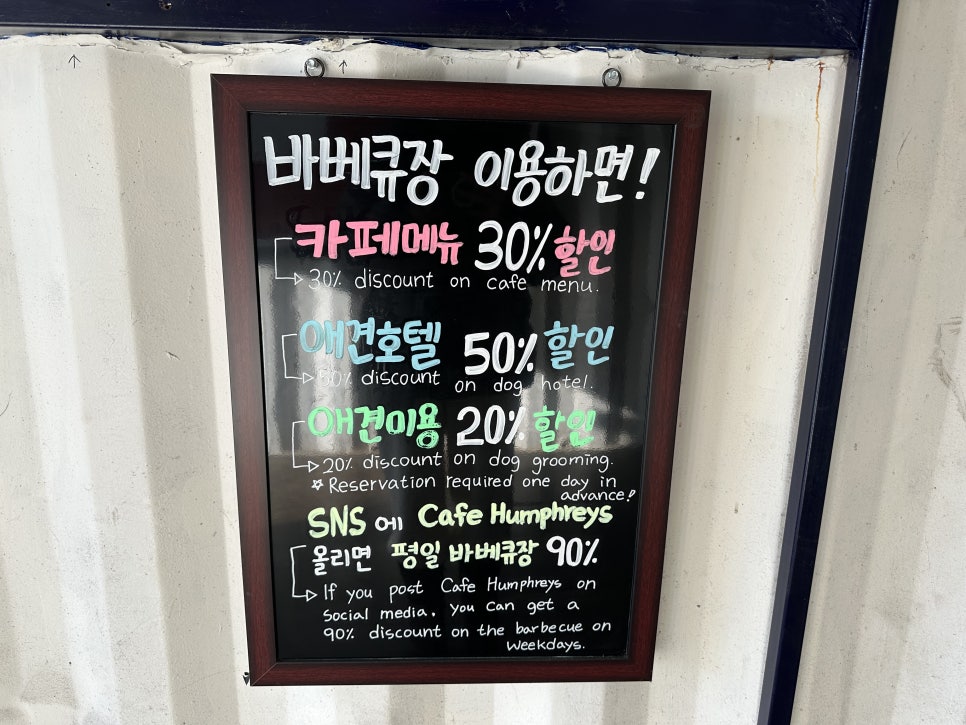 바베큐장 이용하면!
카페메뉴 30% 할인
30% discount on cafe menu.
애견호텔 50% 할인
50% discount on dog hotel.
애견미용 20% 할인
20% discount on dog grooming.
☆Reservation required one day in
advance!
SNS에 Cafe Humphreys
올리면 평일 바베큐장 90%
If you post Cafe Humphreys on
social media, you can get a
90% discount on the barbecue on
weekdays.